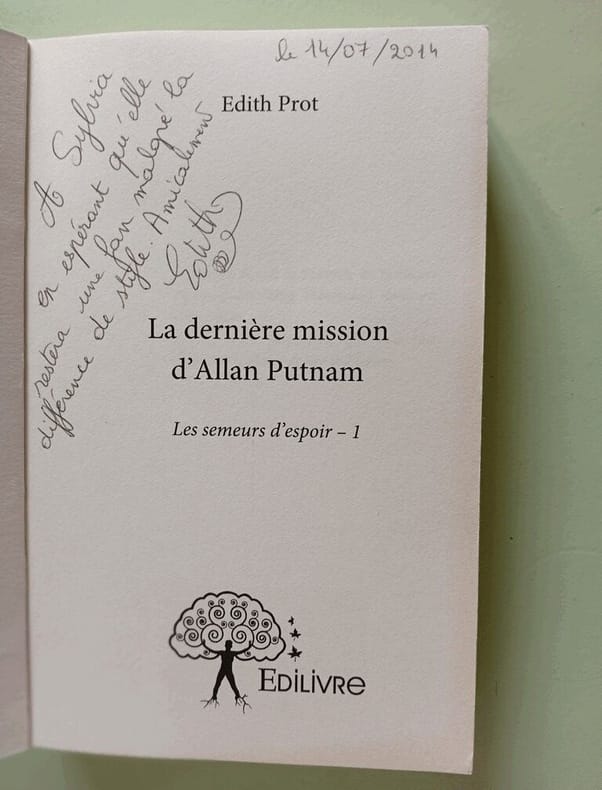 le 14/07/2014
Edith Prot
A Sylvia
en espérant qu'elle
restera une fan malgré la
différence de style. Amicalement
Edith
La dernière mission
d'Allan Putnam
Les semeurs d'espoir – 1
EDILIVRE